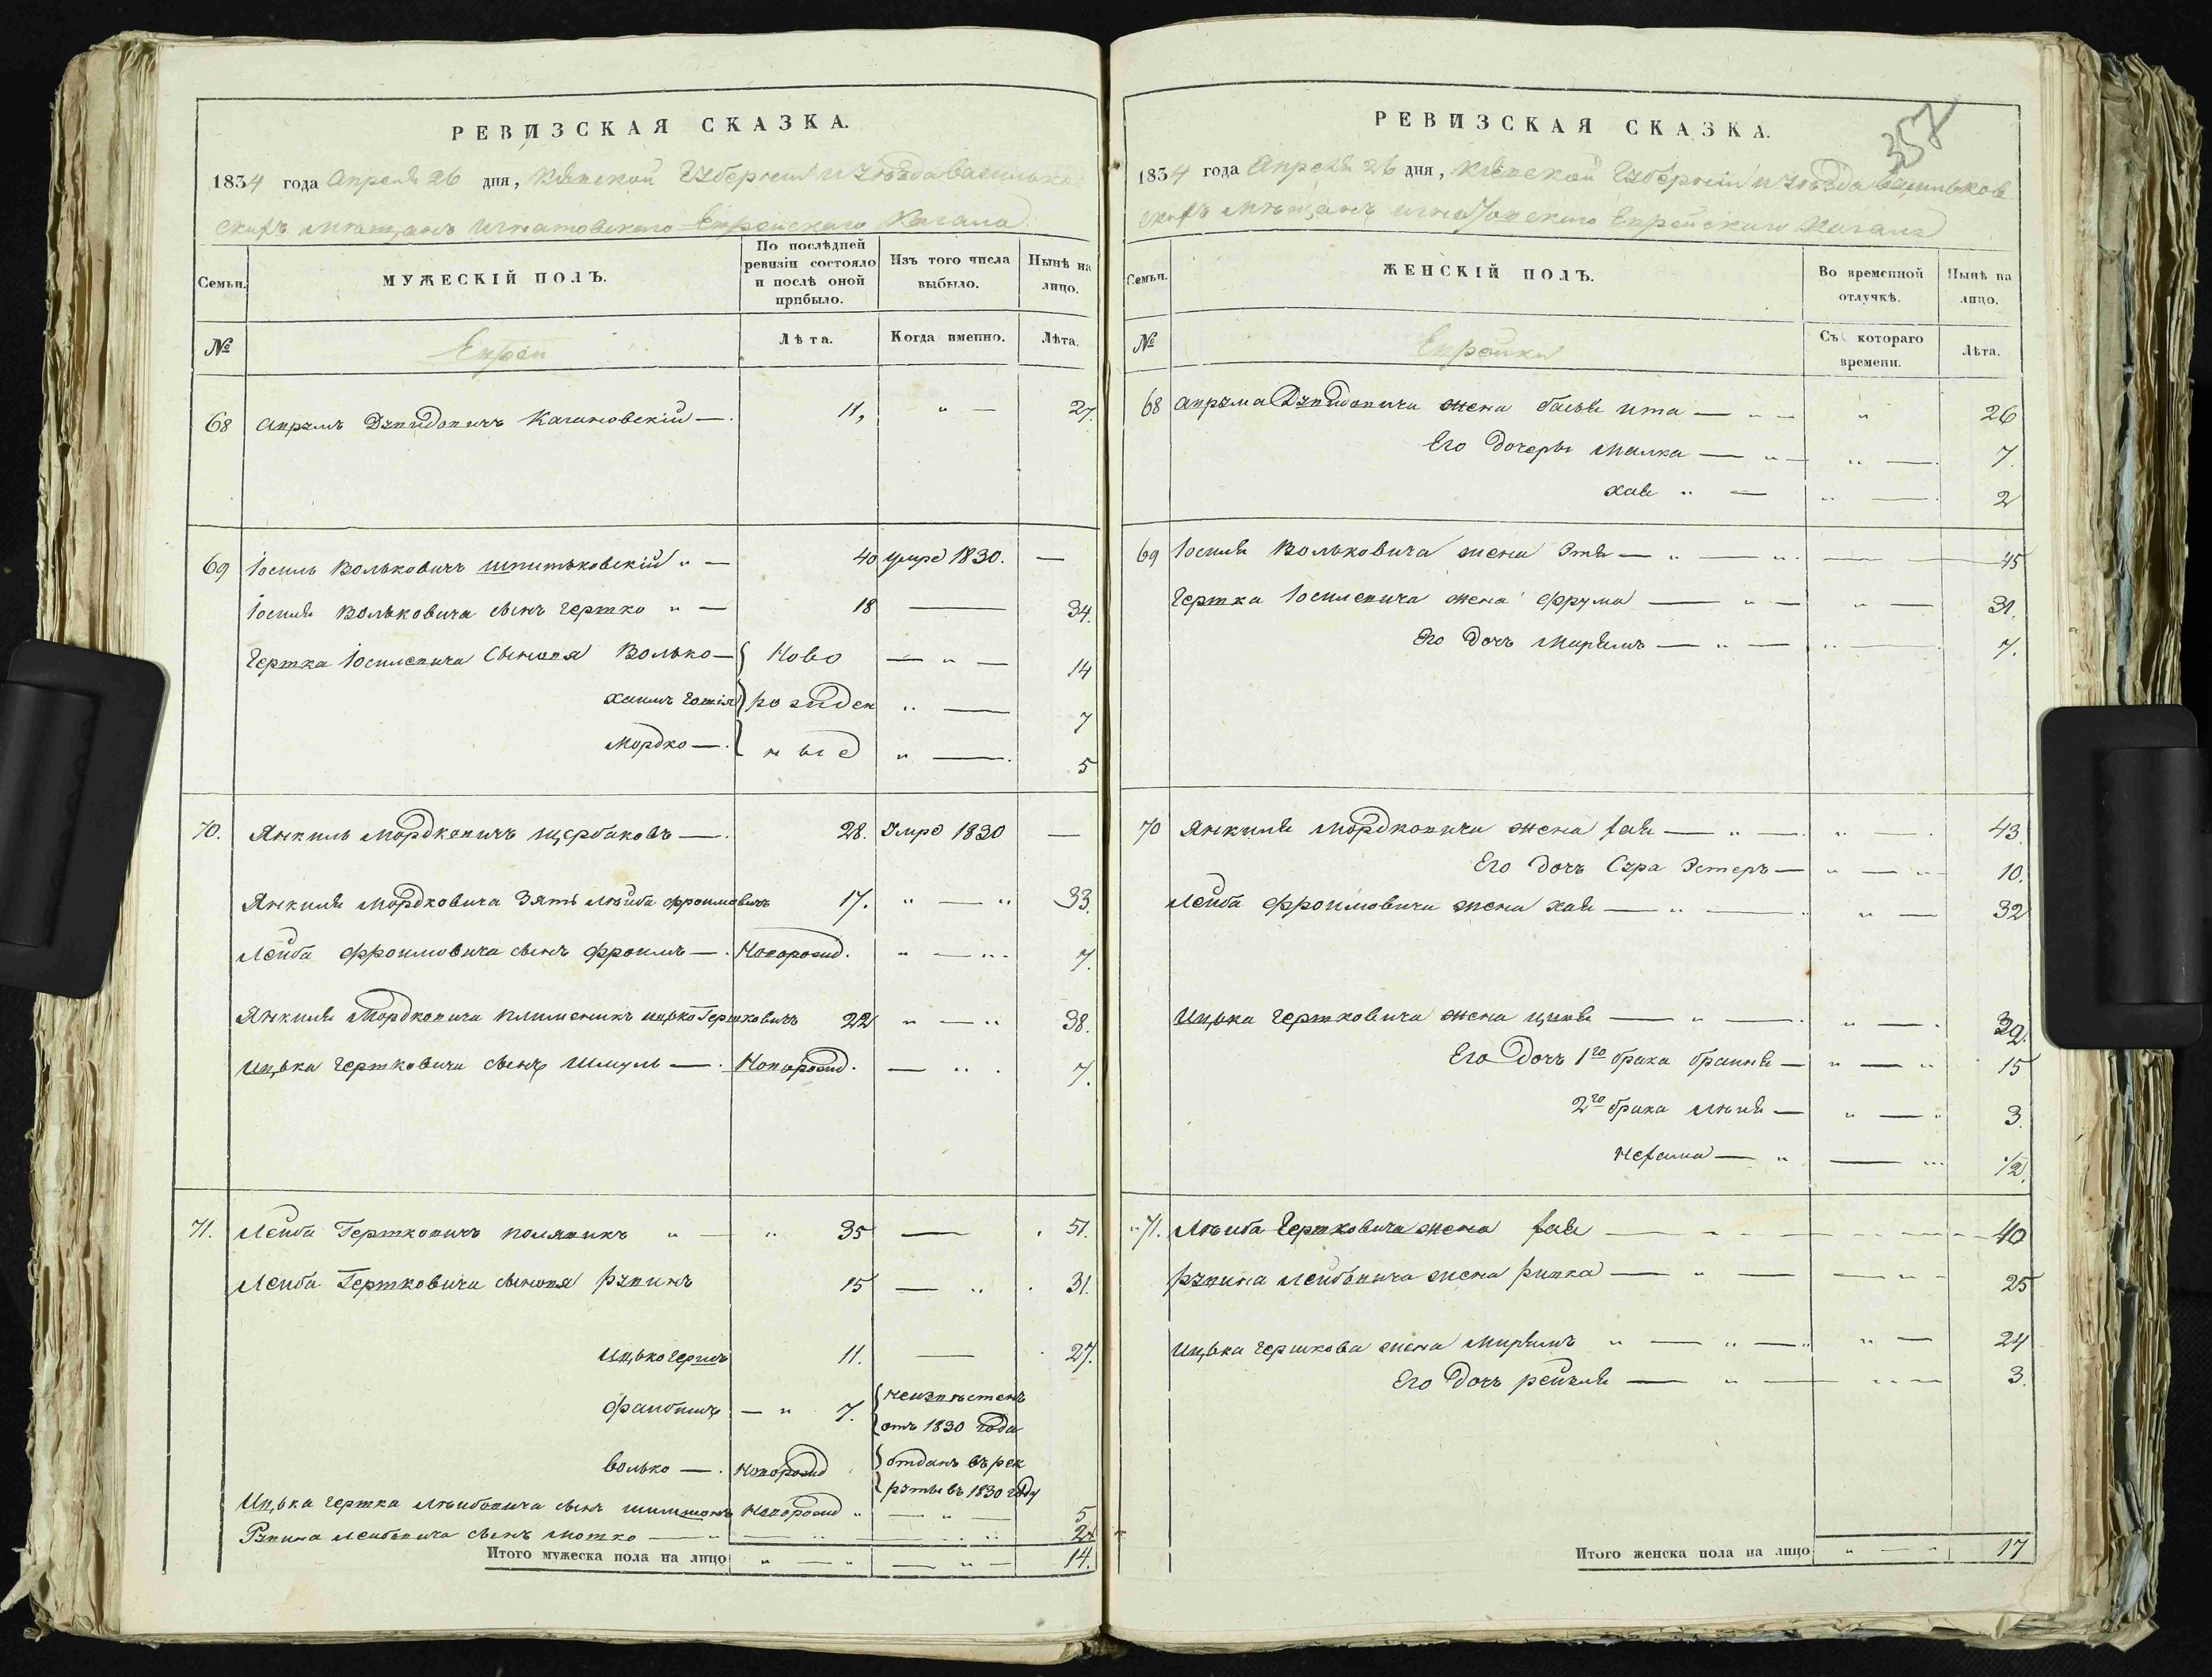 РЕВИЗСКАЯ СКАЗКА.
1834 года Апреля 26 дня, Кіевской Губерніи и уѣзда Васильков
скихъ мѣщанъ Игнатовскаго Еврейскаго Кагала
Семьи.
МУЖЕСКІЙ ПОЛЪ.
По послѣдней ревизіи состояло и послѣ оной прибыло.
Изъ того числа выбыло.
Нынѣ на лицо.
№
Евреи
Лѣта.
Когда именно.
Лѣта.
68 Аврумъ Дувидовичъ Кагановскій — 11, " — 27.
69 Іосиль Вольковичъ Шпитьковскій " — 40 умре 1830. —
Іосиля Вольковича сынъ Гершко " — 18 — 34.
Гершка Іосилевича сыновя Волько — Ново — " — 14
Хаимъ рожден " — 7
Мордко — ные " — 5
70. Янкиль Мордковичъ Щербаковъ — 28. Умре 1830 —
Янкиля Мордковича зять Лейба Фроимовичъ 17. " — " 33.
Лейба Фроимовича сынъ Фроимъ —Новорожд. " — " 7.
Янкиля Мордковича племеникъ Ицько Гершковичъ 22 " — " 38.
Ицька Гершковича сынъ Шмуль — Новорожд. — " 7.
71. Лейба Гершковичъ Полявикъ " — " 35 — 51.
Лейба Гершковича сыновя Рувинъ 15 — " 31.
Ицько Гершъ 11. — 27.
Файбишъ — " 7. неизвѣстенъ
отъ 1830 года
Волько — Новорожд отданъ въ рек
руты въ 1830 году
Ицька Гершка Лейбовича сынъ Шимшонъ Новорожд " — " — 5
Рувина Лейбовича сынъ Мотко — " — " — " 2
Итого мужеска пола на лицо " — " — " — 14.
РЕВИЗСКАЯ СКАЗКА.
357
1834 года Апреля 26 дня, Кіевской Губерніи и уѣзда Васильков
скихъ мѣщанъ Игнатовскаго Еврейскаго Кагала
Семьи.
ЖЕНСКІЙ ПОЛЪ.
Во временной отлучкѣ.
Нынѣ на лицо.
№
Еврейки
Съ котораго времени.
Лѣта.
68 Аврума Дувидовича жена Бася Ита — " — " 26
Его дочеры Малка — " — " — 7.
Хая " — " — 2
69 Іосиля Вольковича жена Этя — " — " — 45
Гершка Іосилевича жена Фрума — " — " — 31.
Его дочь Марьямъ — " — " — 7.
70 Янкиля Мордковича жена Хая — " — " — 43.
Его дочь Сура Эстеръ — " — " 10.
Лейба Фроимовича жена Хая — " — " — 32
Ицька Гершковича жена Цивя — " — " — 32.
Его дочь 1го брака Брайня — " — " 15
2го брака Лыя — " — " 3.
Нехама — " — " 1/2.
71. Лейба Гершковича жена Хая — 40
Рувина Лейбовича жена Ривка — " — " — 25
Ицька Гершкова жена Марьямъ " — " — " " — 24
Его дочь Рейзля — " — " — 3.
Итого женска пола на лицо " — " 17